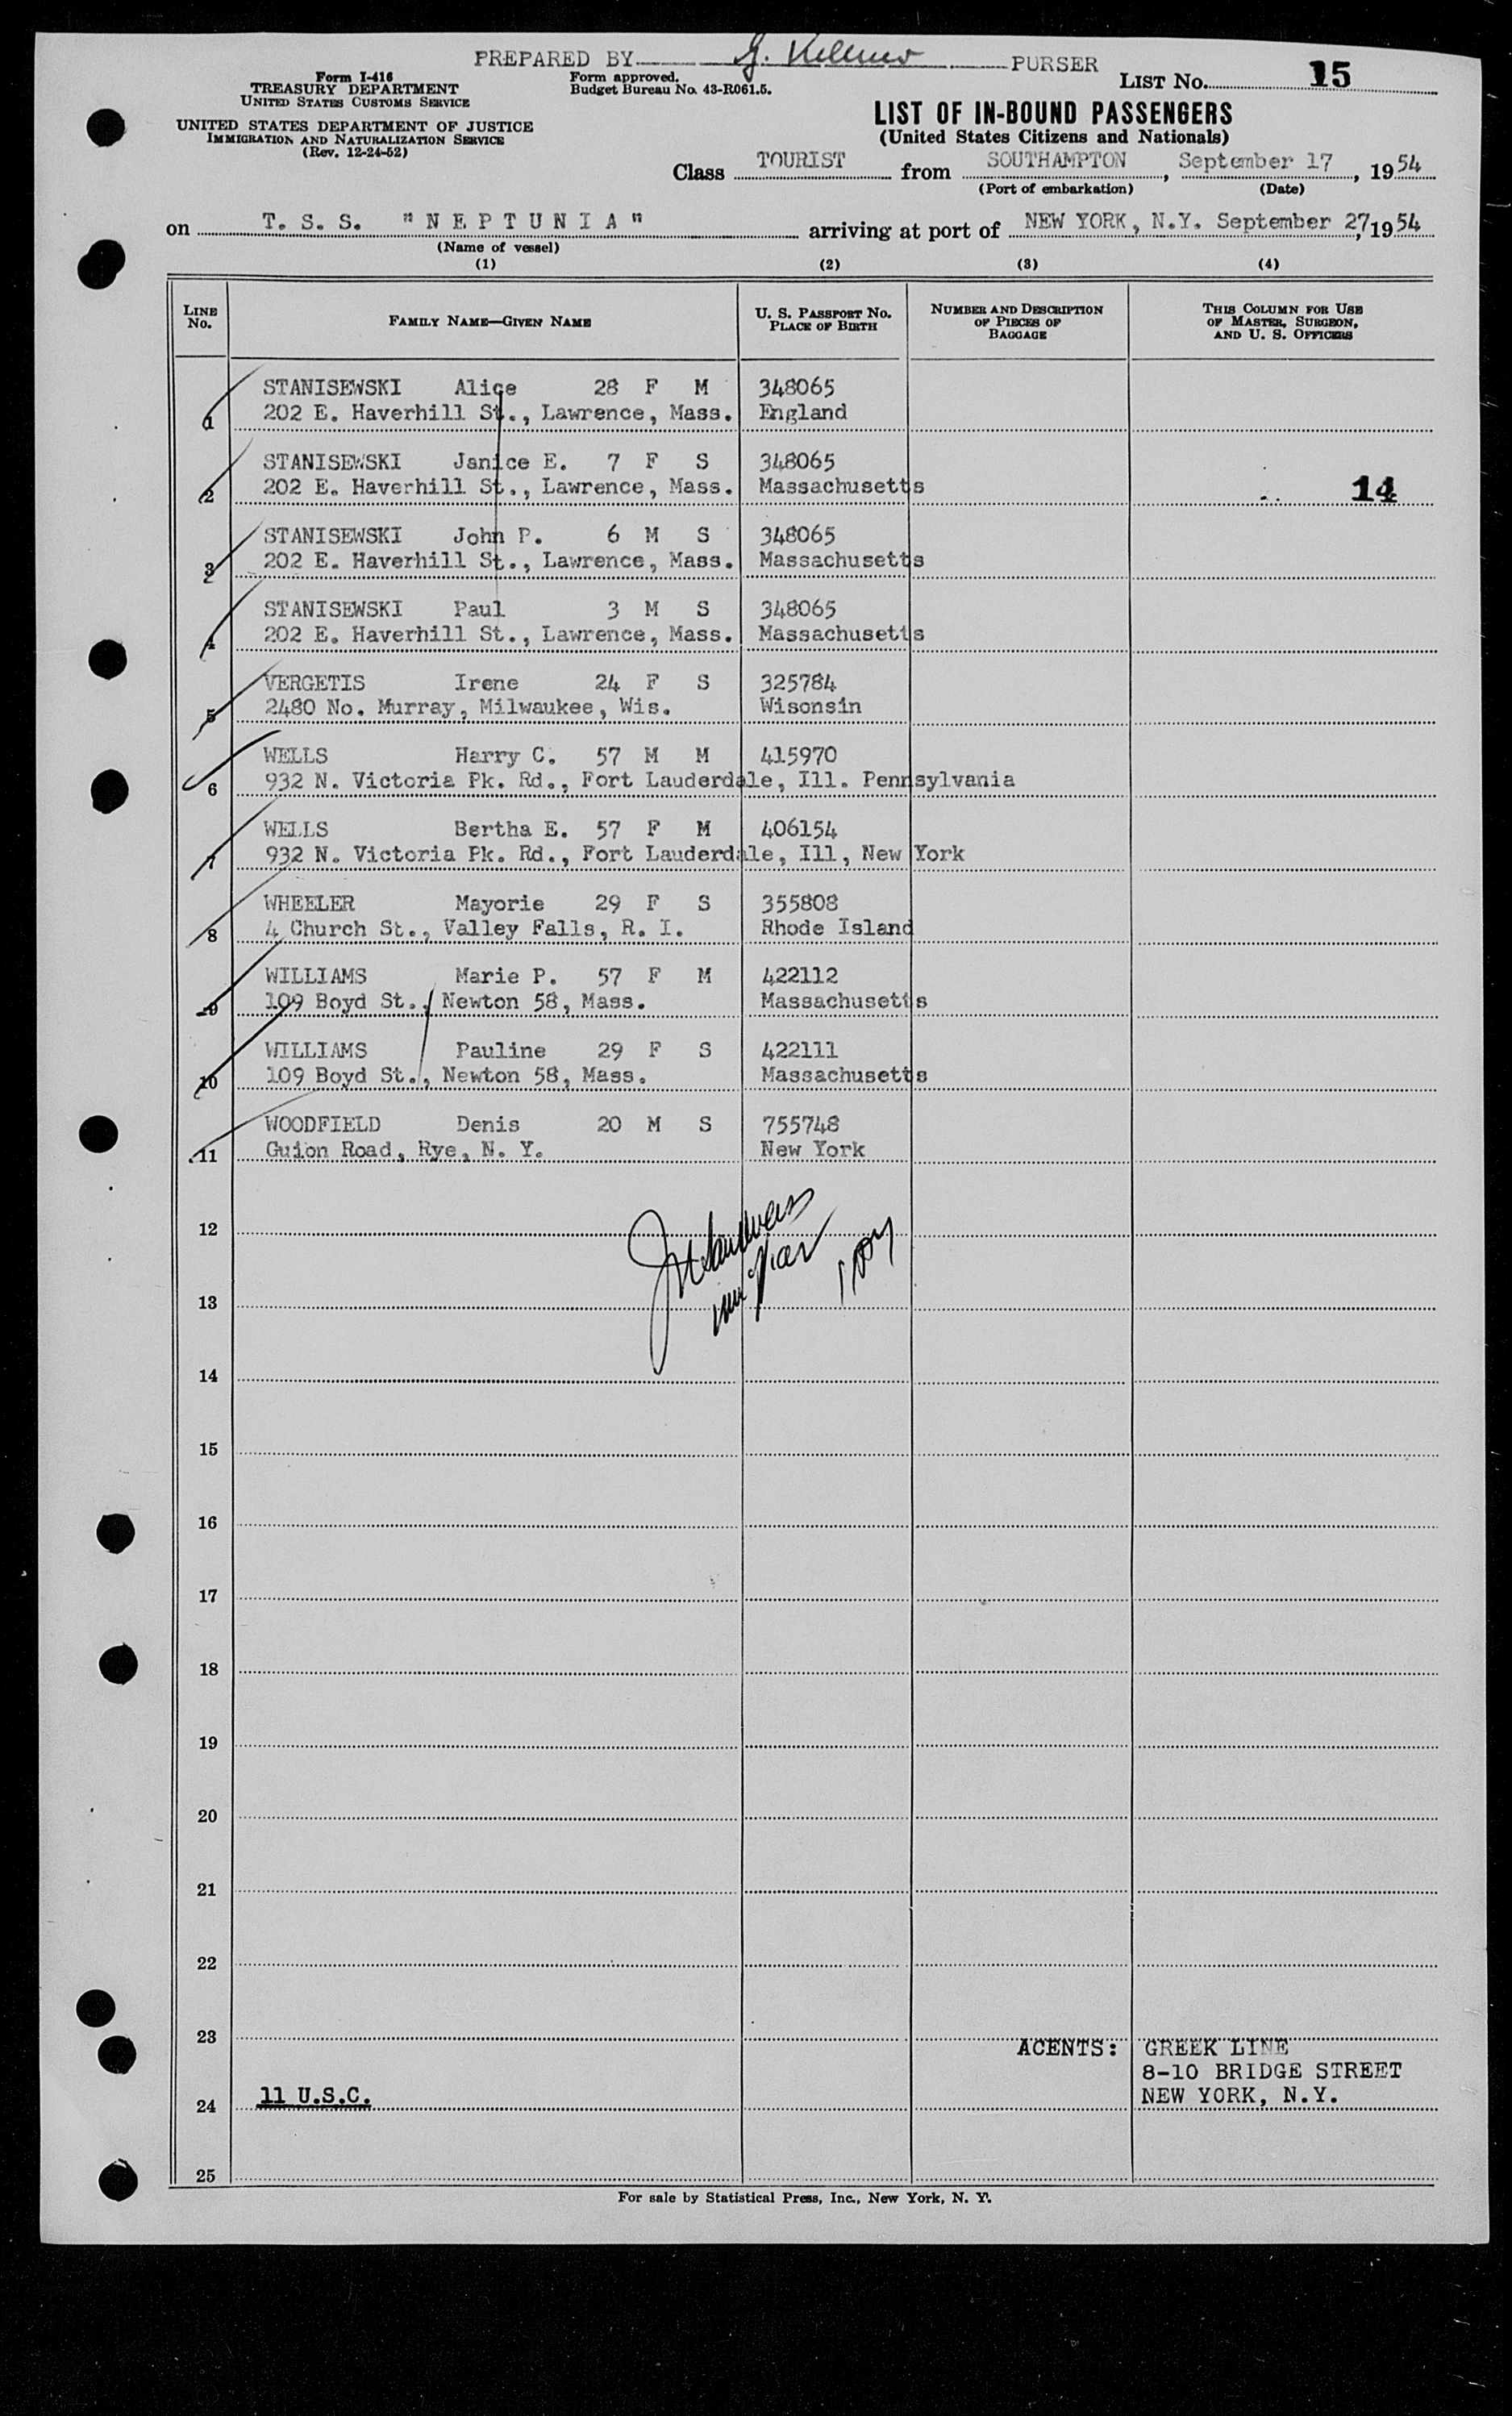 PREPARED BY G. PURSER
Form I-416
TREASURY DEPARTMENT
UNITED STATES CUSTOMS SERVICE
Form approved.
Budget Bureau No. 43-R061.5.
LIST No. 15
UNITED STATES DEPARTMENT OF JUSTICE
IMMIGRATION AND NATURALIZATION SERVICE
(Rev. 12-24-52)
LIST OF IN-BOUND PASSENGERS
(United States Citizens and Nationals)
Class TOURIST from SOUTHAMPTON, September 17, 1954
(Port of embarkation) (Date)
on T. S. S. "N E P T U N I A" arriving at port of NEW YORK, N.Y. September 27, 1954
(Name of vessel)
(1) (2) (3) (4)
LINE No. FAMILY NAME—GIVEN NAME U. S. PASSPORT No. PLACE OF BIRTH NUMBER AND DESCRIPTION OF PIECES OF BAGGAGE THIS COLUMN FOR USE OF MASTER, SURGEON, AND U. S. OFFICERS
STANISEWSKI Alice 28 F M 348065
1 202 E. Haverhill St., Lawrence, Mass. England
STANISEWSKI Janice E. 7 F S 348065
2 202 E. Haverhill St., Lawrence, Mass. Massachusetts 14
STANISEWSKI John P. 6 M S 348065
3 202 E. Haverhill St., Lawrence, Mass. Massachusetts
STANISEWSKI Paul 3 M S 348065
4 202 E. Haverhill St., Lawrence, Mass. Massachusetts
VERGETIS Irene 24 F S 325784
5 2480 No. Murray, Milwaukee, Wis. Wisonsin
WELLS Harry C. 57 M M 415970
6 932 N. Victoria Pk. Rd., Fort Lauderdale, Ill. Pennsylvania
WELLS Bertha E. 57 F M 406154
7 932 N. Victoria Pk. Rd., Fort Lauderdale, Ill, New York
WHEELER Mayorie 29 F S 355808
8 4 Church St., Valley Falls, R. I. Rhode Island
WILLIAMS Marie P. 57 F M 422112
9 109 Boyd St., Newton 58, Mass. Massachusetts
WILLIAMS Pauline 29 F S 422111
10 109 Boyd St., Newton 58, Mass. Massachusetts
WOODFIELD Denis 20 M S 755748
11 Guion Road, Rye, N. Y. New York
12
13
14
15
16
17
18
19
20
21
22
23 AGENTS: GREEK LINE
8-10 BRIDGE STREET
24 11 U.S.C. NEW YORK, N.Y.
25
For sale by Statistical Press, Inc., New York, N. Y.